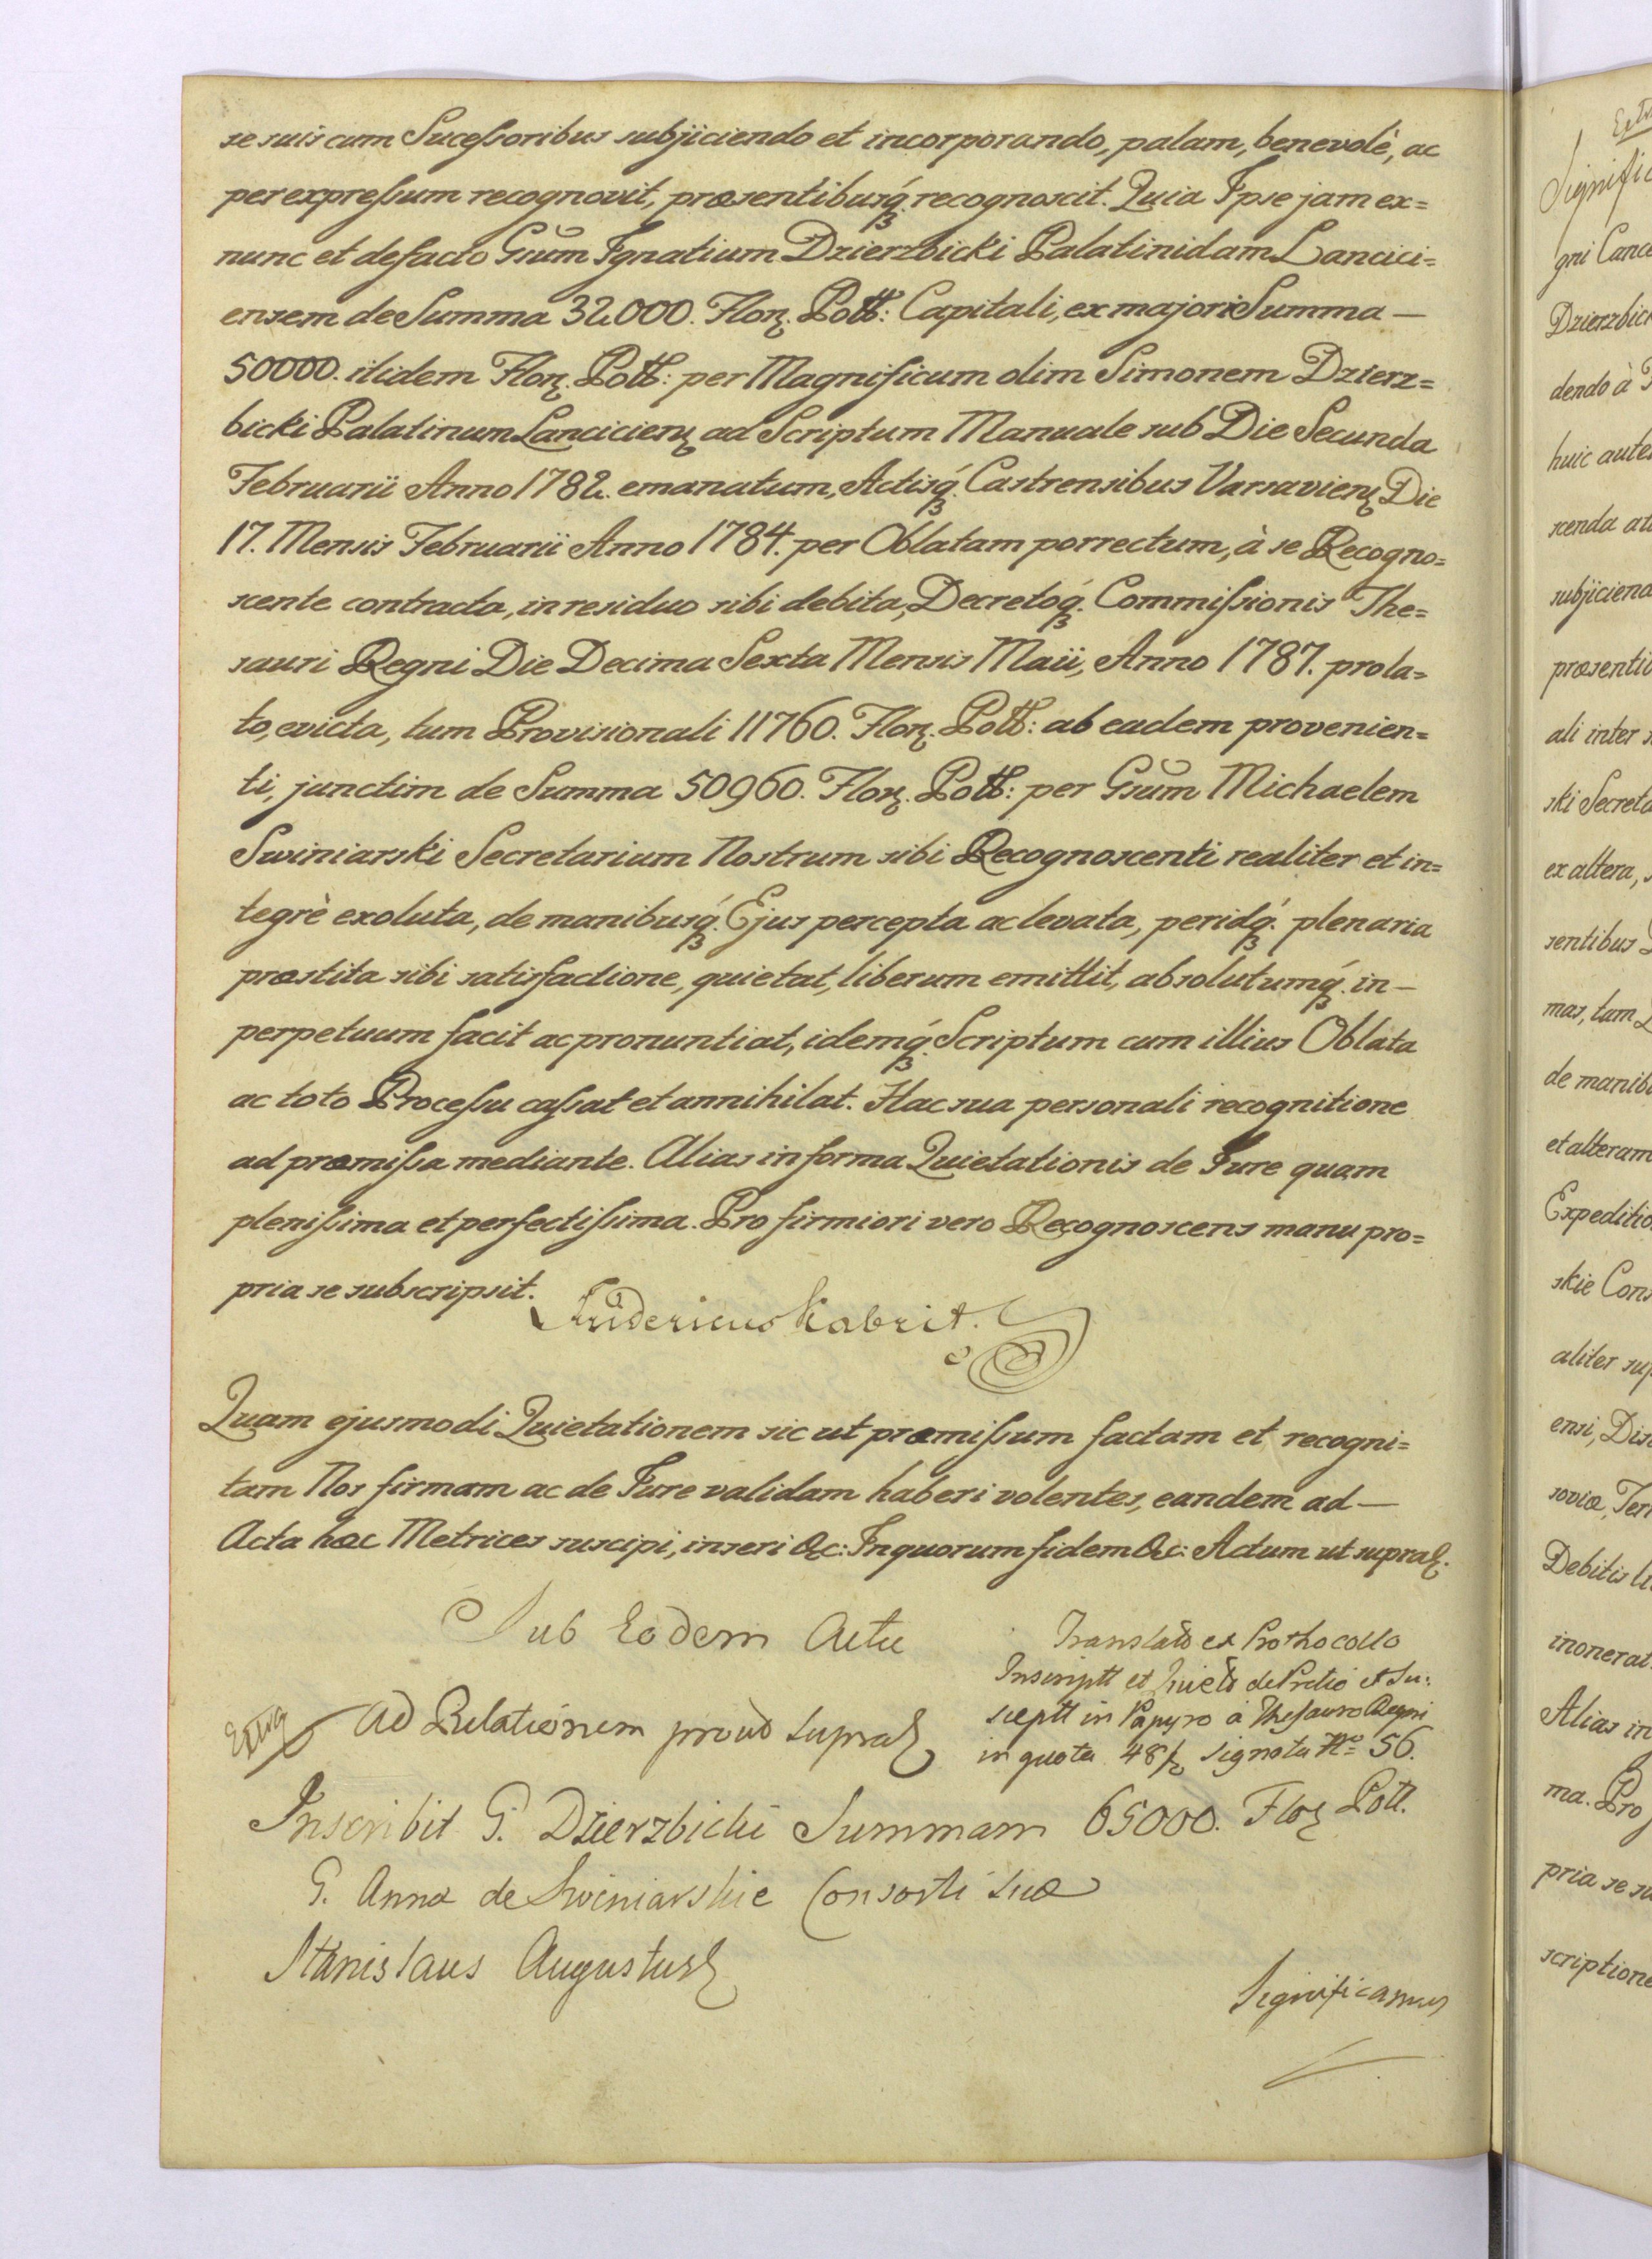 se suis cum Sucessoribus subjiciendo et incorporando, palam, benevolè, ac
per expressum recognovit, præsentibusq́; recognoscit. Quia Ipse jam ex=
nunc et de facto Gsum Ignatium Dzierzbicki Palatinidam Lancici=
ensem de Summa 32000. Flor. Poll: Capitali, ex majori Summa —
50000. itidem Flor. Poll: per Magnificum olim Simonem Dzierz=
bicki Palatinum Lanciciens ad Scriptum Manuale sub Die Secunda
Februarii Anno 1782. emanatum, Actisq́; Castrensibus Varsaviens Die
17. Mensis Februarii Anno 1784. per Oblatam porrectum, à se Recogno=
scente contracta, in residuo sibi debita, Decretoq́; Commissionis The=
sauri Regni Die Decima Sexta Mensis Maii, Anno 1787. prola=
to, evicta, tum Provisionali 11760. Flor. Poll: ab eadem provenien=
ti, junctim de Summa 50960. Flor. Poll: per Gsum Michaelem
Swiniarski Secretarium Nostrum sibi Recognoscenti realiter et in=
tegrè exoluta, de manibusq́; Ejus percepta ac levata, peridq́; plenaria
præstita sibi satisfactione, quietat, liberum emittit, absolutumq́; in —
perpetuum facit ac pronuntiat, idemq́; Scriptum cum illius Oblata
ac toto Processu cassat et annihilat. Hac sua personali recognitione
ad præmissa mediante. Alias in forma Quietationis de Jure quam
plenissima et perfectissima. Pro firmiori vero Recognoscens manu pro=
pria se subscripsit.
Fridericus Kabrit.
Quam ejusmodi Quietationem sic ut præmissum factam et recogni=
tam Nos firmam ac de Jure validam haberi volentes, eandem ad —
Acta hæc Metrices suscipi, inseri &c: In quorum fidem &c: Actum ut supra.
Sub Eodem Actu
Translat ex Prothocollo
Inscriptt et Quiett de Pretio et Su:
sceptt in Papyro à Thesauro Regni
in quota 48/2 signata No 56.
Extrq
Ad Relationem prout supra
Inscribit G. Dzierzbicki Summam 65000. Flor Poll.
G. Annæ de Swiniarskie Consorti suæ
Stanislaus Augustus
Significamus